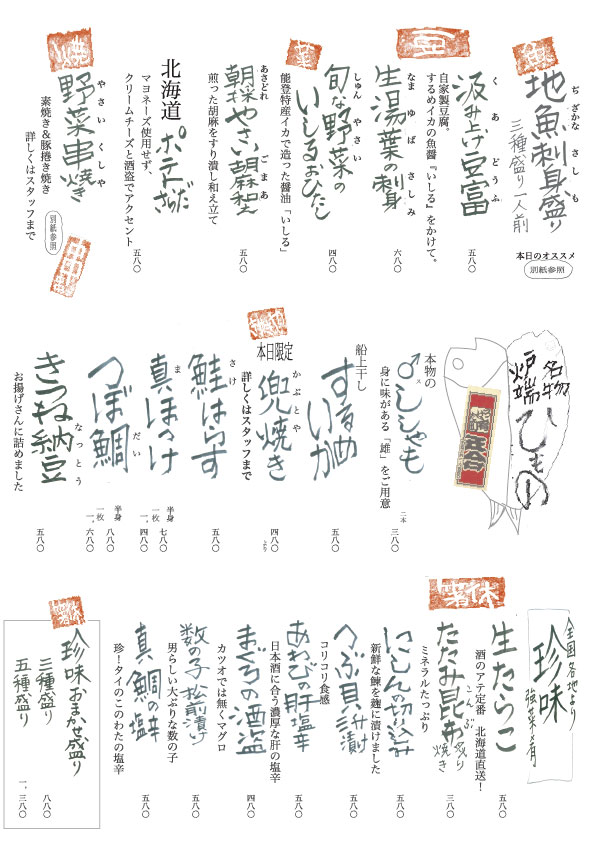 地魚刺身盛り
ぢざかな さしも
三種盛り一人前
本日のオススメ
別紙参照
汲み上げ豆富
くあどうふ
五八〇
自家製豆腐。
するめイカの魚醤『いしる』をかけて。
生湯葉の刺身
なまゆばさしみ
六八〇
旬な野菜の
しゅんやさい
いしるおひたし
能登特産イカで造った醤油「いしる」
四八〇
朝採やさい胡麻和え
あさどれ ごまあ
煎った胡麻をすり潰し和え立て
五八〇
北海道
ポテトさらだ
マヨネーズ使用せず、
クリームチーズと酒盗でアクセント
五八〇
野菜串焼き
やさいくしや
素焼き&豚捲き焼き
詳しくはスタッフまで
別紙参照
名物
炉端
ひもの
本物の
♂ししゃも
オス
身に味がある「雄」をご用意
二本
三八〇
船上干し
するめいか
五八〇
本日限定
兜焼き
かぶとや
詳しくはスタッフまで
四八〇より
鮭はらす
さけ
五八〇
真ほっけ
ま
半身
七八〇
一枚
一、四八〇
つぼ鯛
だい
半身
八八〇
一枚
一、六八〇
きつね納豆
なっとう
お揚げさんに詰めました
五八〇
全国各地より
珍味
強菜〆肴
生たらこ
酒のアテ定番 北海道直送!
五八〇
たたみ昆布炙り焼き
こんぶ
ミネラルたっぷり
三八〇
にしんの切り込み
新鮮な鰊を麹に漬けました
五八〇
つぶ貝汁漬
コリコリ食感
五八〇
あわびの肝塩辛
日本酒に合う濃厚な肝の塩辛
五八〇
まぐろの酒盗
カツオでは無くマグロ
四八〇
数の子松前漬け
男らしい大ぶりな数の子
五八〇
真鯛の塩辛
珍!タイのこのわたの塩辛
五八〇
珍味おまかせ盛り
三種盛り
八八〇
五種盛り
一、三八〇